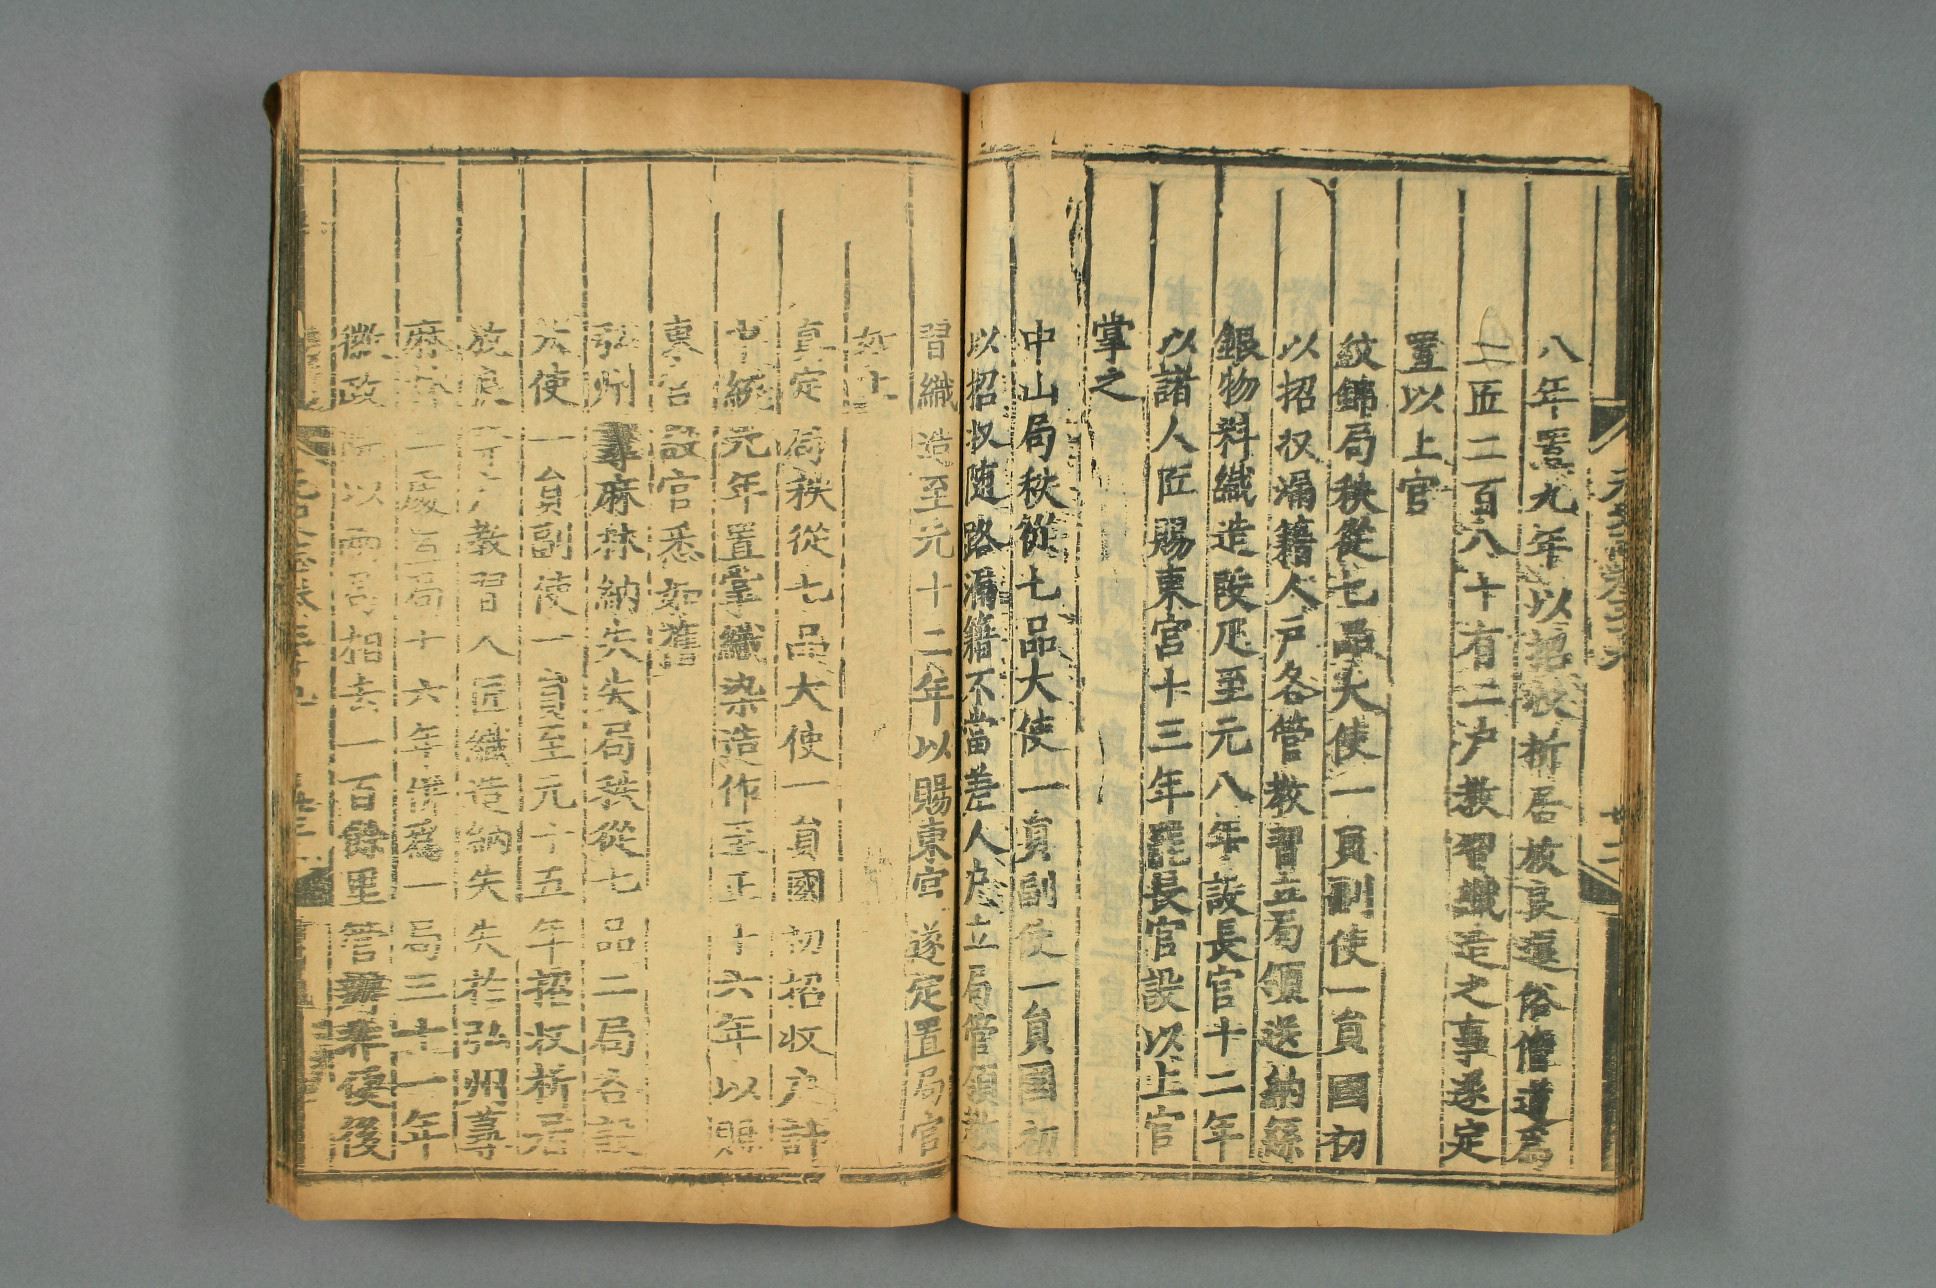 八年置九年以招收析居放良還俗僧道爲
工匠二百八十有二户教習織造之事遂定
置以上官
紋錦局秩從七品大使一員副使一員國初
以招收漏籍人户各管教習立局領送納絲
銀物料織造段疋至元八年設長官十二年
以諸人匠賜東宫十三年罷長官設以上官
掌之
中山局秩從七品大使一員副使一員國初
以招收随路漏籍不當差人户立局管領教
習織造至元十二年以賜東宫遂定置局官
如上
真定局秩從七品大使一員國初招收户計
中統元年置掌織染造作至正十六年以賜
東宫設官悉如舊
弘州蕁麻林納失失局秩從七品二局各設
大使一員副使一員至元十五年招收析居
放良等户教習人匠織造納失失於弘州蕁
麻林二處置局十六年併爲一局三十一年
徽政院以兩局相去一百餘里管辦非便後